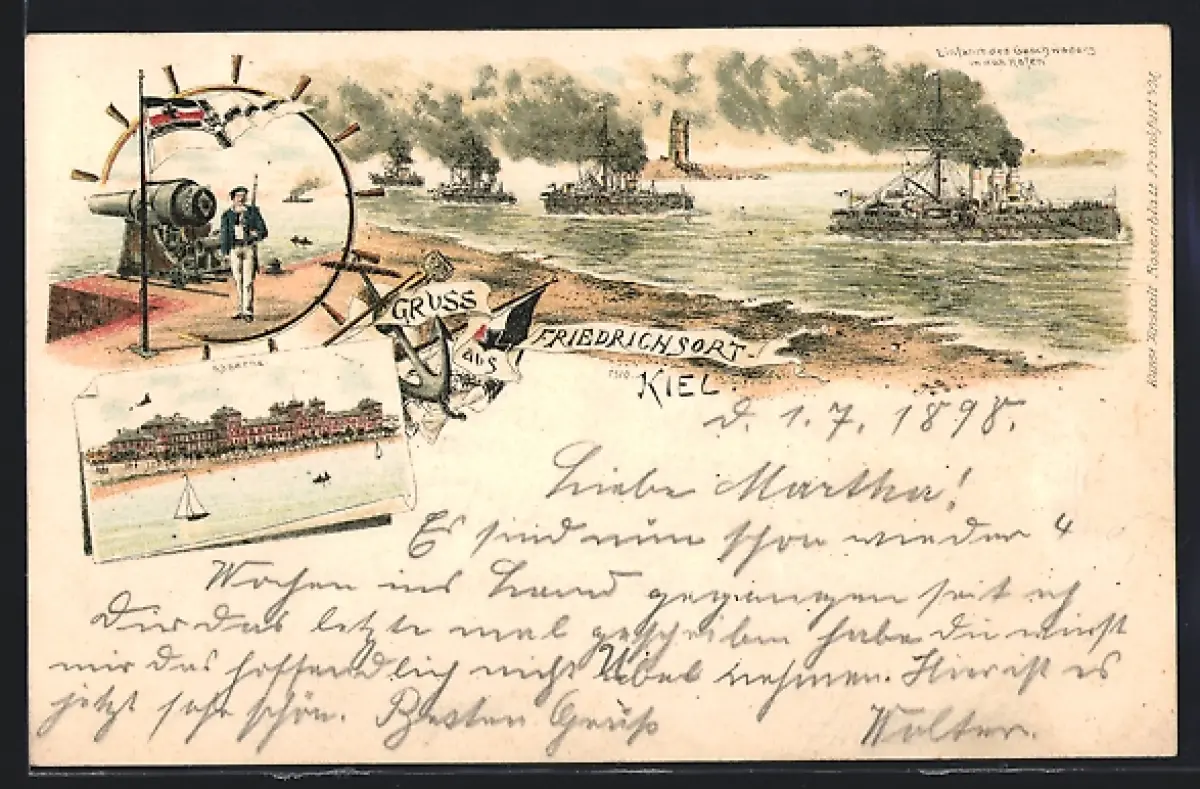 Einfahrt des Geschwaders
in den Hafen
Kunst Anstalt Rosenblatt Frankfurt a/M.
GRUSS
aus
FRIEDRICHSORT-
KIEL
Kaserne
d. 1.7. 1898.
Liebe Martha!
Es sind nun schon wieder 4
Wochen ins Land gegangen seit ich
Dir das letzte mal geschrieben habe die wirst
mir das hoffendlich nicht Übel nehmen. Hier ist es
jetzt sehr schön. Besten Gruß
Wolter.